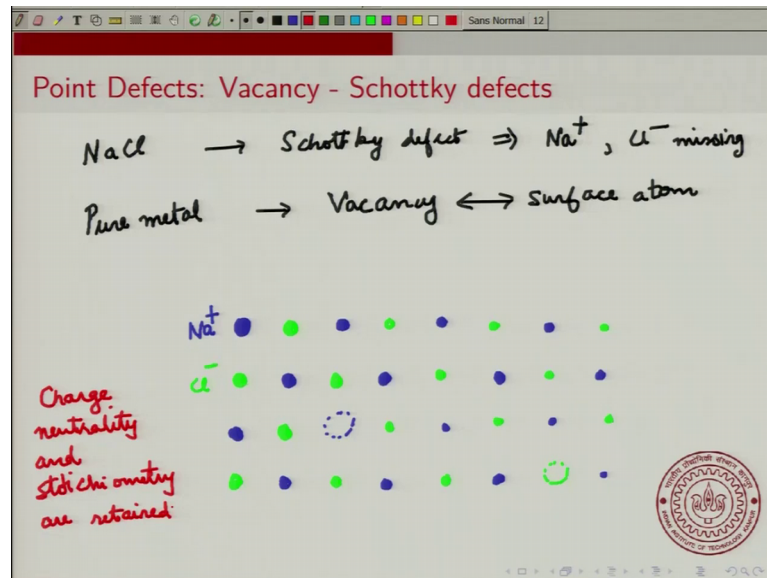 Sans Normal 12
Point Defects: Vacancy - Schottky defects
NaCl → Schottky defect ⇒ Na⁺, Cl⁻ missing
Pure metal → Vacancy ↔ surface atom
Na⁺
Cl⁻
Charge
neutrality
and
stoichiometry
are retained
भारतीय प्रौद्योगिकी संस्थान कानपुर
INDIAN INSTITUTE OF TECHNOLOGY KANPUR